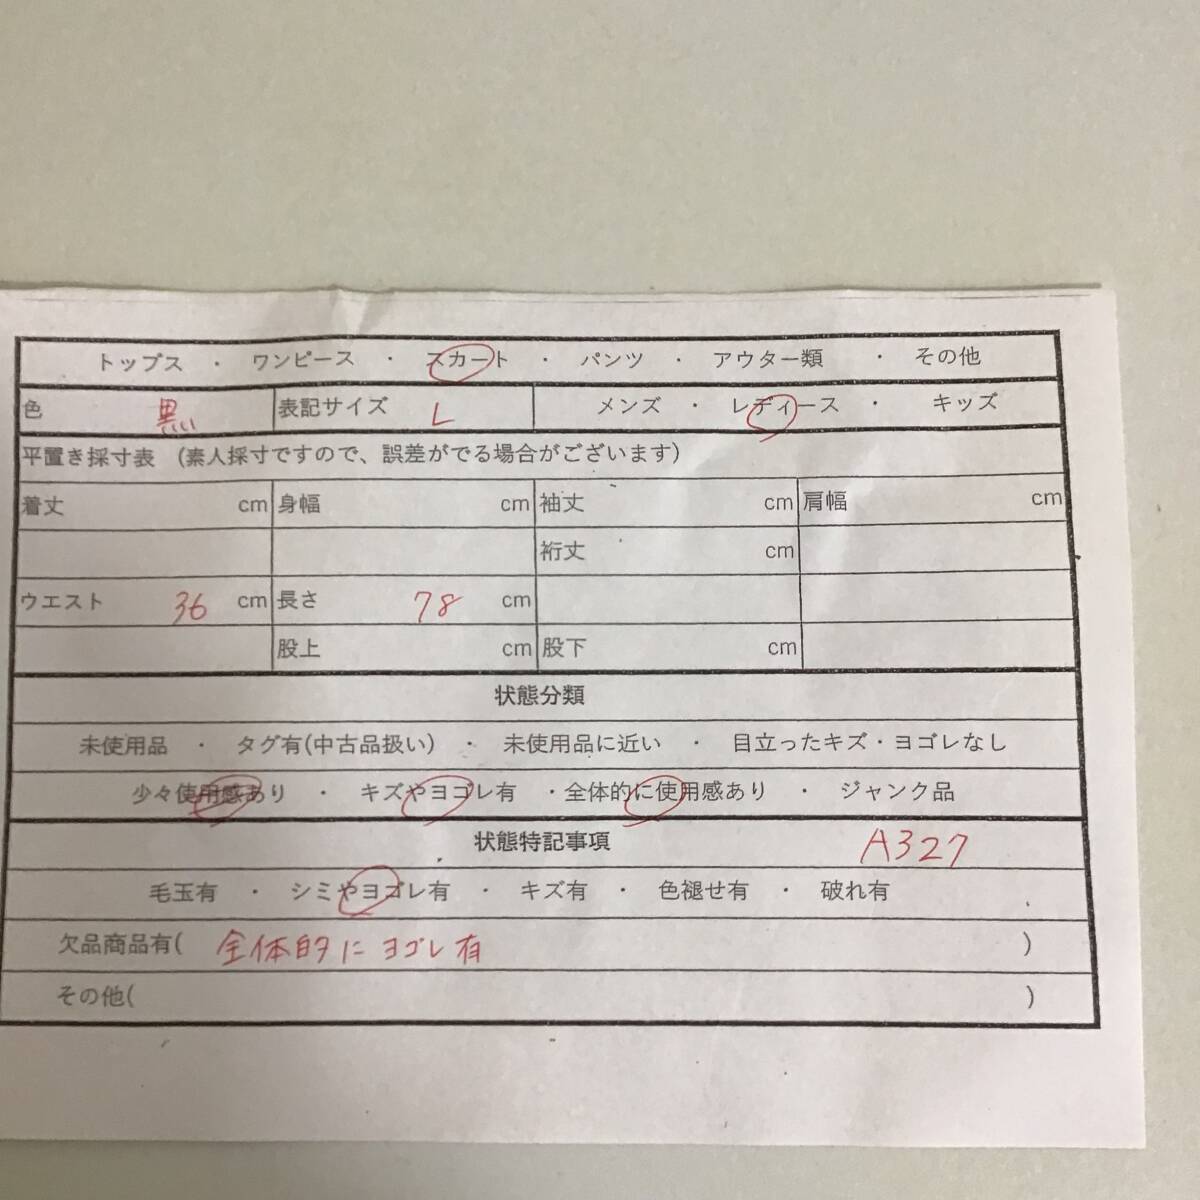 トップス ・ ワンピース ・ スカート ・ パンツ ・ アウター類 ・ その他
色 黒い 表記サイズ L メンズ ・ レディース ・ キッズ
平置き採寸表 (素人採寸ですので、誤差がでる場合がございます)
着丈 cm 身幅 cm 袖丈 cm 肩幅 cm
裄丈 cm
ウエスト 36 cm 長さ 78 cm
股上 cm 股下 cm
状態分類
未使用品 ・ タグ有(中古品扱い) ・ 未使用品に近い ・ 目立ったキズ・ヨゴレなし
少々使用感あり ・ キズやヨゴレ有 ・全体的に使用感あり ・ ジャンク品
状態特記事項 A327
毛玉有 ・ シミやヨゴレ有 ・ キズ有 ・ 色褪せ有 ・ 破れ有
欠品商品有( 全体的にヨゴレ有 )
その他( )